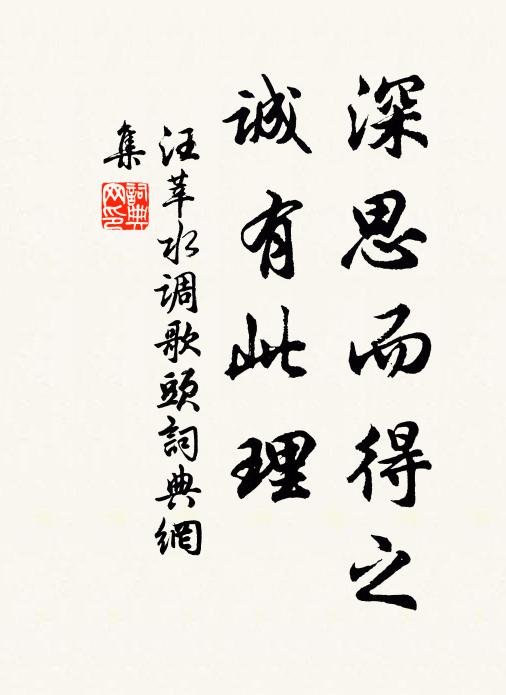 深思而得之
誠有此理
汪莘水调歌頭詞典網
集
詞典
网印